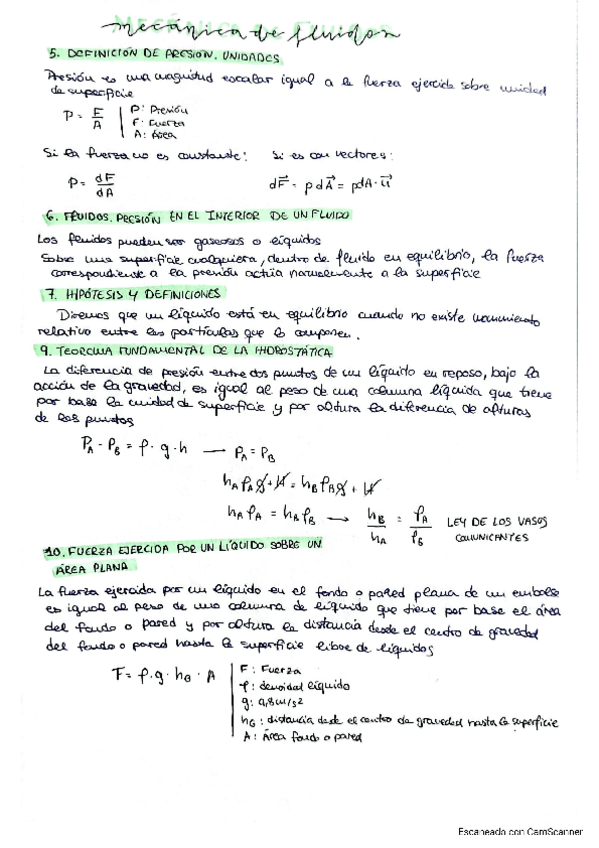 mecánica de fluidos
5. DEFINICIÓN DE PRESIÓN. UNIDADES
Presión es una magnitud escalar igual a la fuerza ejercida sobre unidad
de superficie
P = F/A | P: Presión
F: Fuerza
A: Área
Si la fuerza no es constante: Si es con vectores:
P = dF/dA dF⃗ = p dA⃗ = pdA · u⃗
6. FLUIDOS. PRESIÓN EN EL INTERIOR DE UN FLUIDO
Los fluidos pueden ser gaseosos o líquidos
Sobre una superficie cualquiera, dentro de fluido en equilibrio, la fuerza
correspondiense a la presión actúa normalmente a la superficie
7. HIPÓTESIS Y DEFINICIONES
Diremos que un líquido está en equilibrio cuando no existe movimiento
relativo entre las partículas que lo componen.
9. TEOREMA FUNDAMENTAL DE LA HIDROSTÁTICA
La diferencia de presión entre dos puntos de un líquido en reposo, bajo la
acción de la gravedad, es igual al peso de una columna líquida que tiene
por base la unidad de superficie y por altura la diferencia de alturas
de los puntos
P_A - P_B = ρ · g · h → P_A = P_B
h_A ρ_A g + H = h_B ρ_B g + H
h_A ρ_A = h_B ρ_B → h_B/h_A = ρ_A/ρ_B LEY DE LOS VASOS
COMUNICANTES
10. FUERZA EJERCIDA POR UN LÍQUIDO SOBRE UN
ÁREA PLANA
La fuerza ejercida por un líquido en el fondo o pared plana de un embolse
es igual al peso de una columna de líquido que tiene por base el área
del fondo o pared y por altura la distancia desde el centro de gravedad
del fondo o pared hasta la superficie libre de líquidos
F = ρ · g · h_G · A | F: Fuerza
ρ: densidad líquido
g: 9,8 m/s²
h_G: distancia desde el centro de gravedad hasta la superficie
A: Área fondo o pared
Escaneado con CamScanner